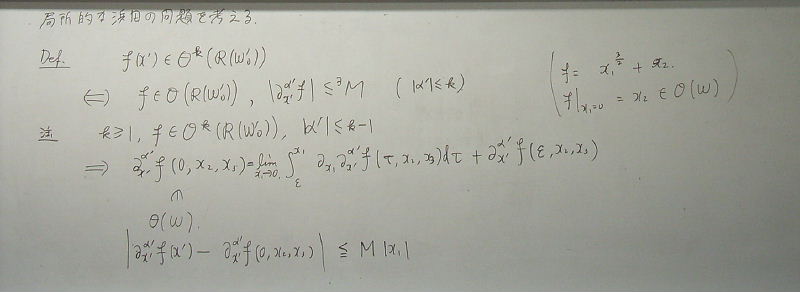 局所的な浜田の問題を考える.
Def. f(x') ∈ O^k(R(W'_0))
⇔ f ∈ O(R(W'_0)), |∂_{x'}^{α'} f| ≤ ^∃M (|α'| ≤ k)
( f = x_1^{3/2} + x_2.
f|_{x_1=0} = x_2 ∈ O(W) )
注 k ≥ 1, f ∈ O^k(R(W'_0)), |α'| ≤ k-1
⇒ ∂_{x'}^{α'} f(0, x_2, x_3) = lim_{x_1→0} ∫_ε^{x_1} ∂_{x_1} ∂_{x'}^{α'} f(τ, x_2, x_3) dτ + ∂_{x'}^{α'} f(ε, x_2, x_3)
∩
O(W).
|∂_{x'}^{α'} f(x') - ∂_{x'}^{α'} f(0, x_2, x_3)| ≦ M|x_1|